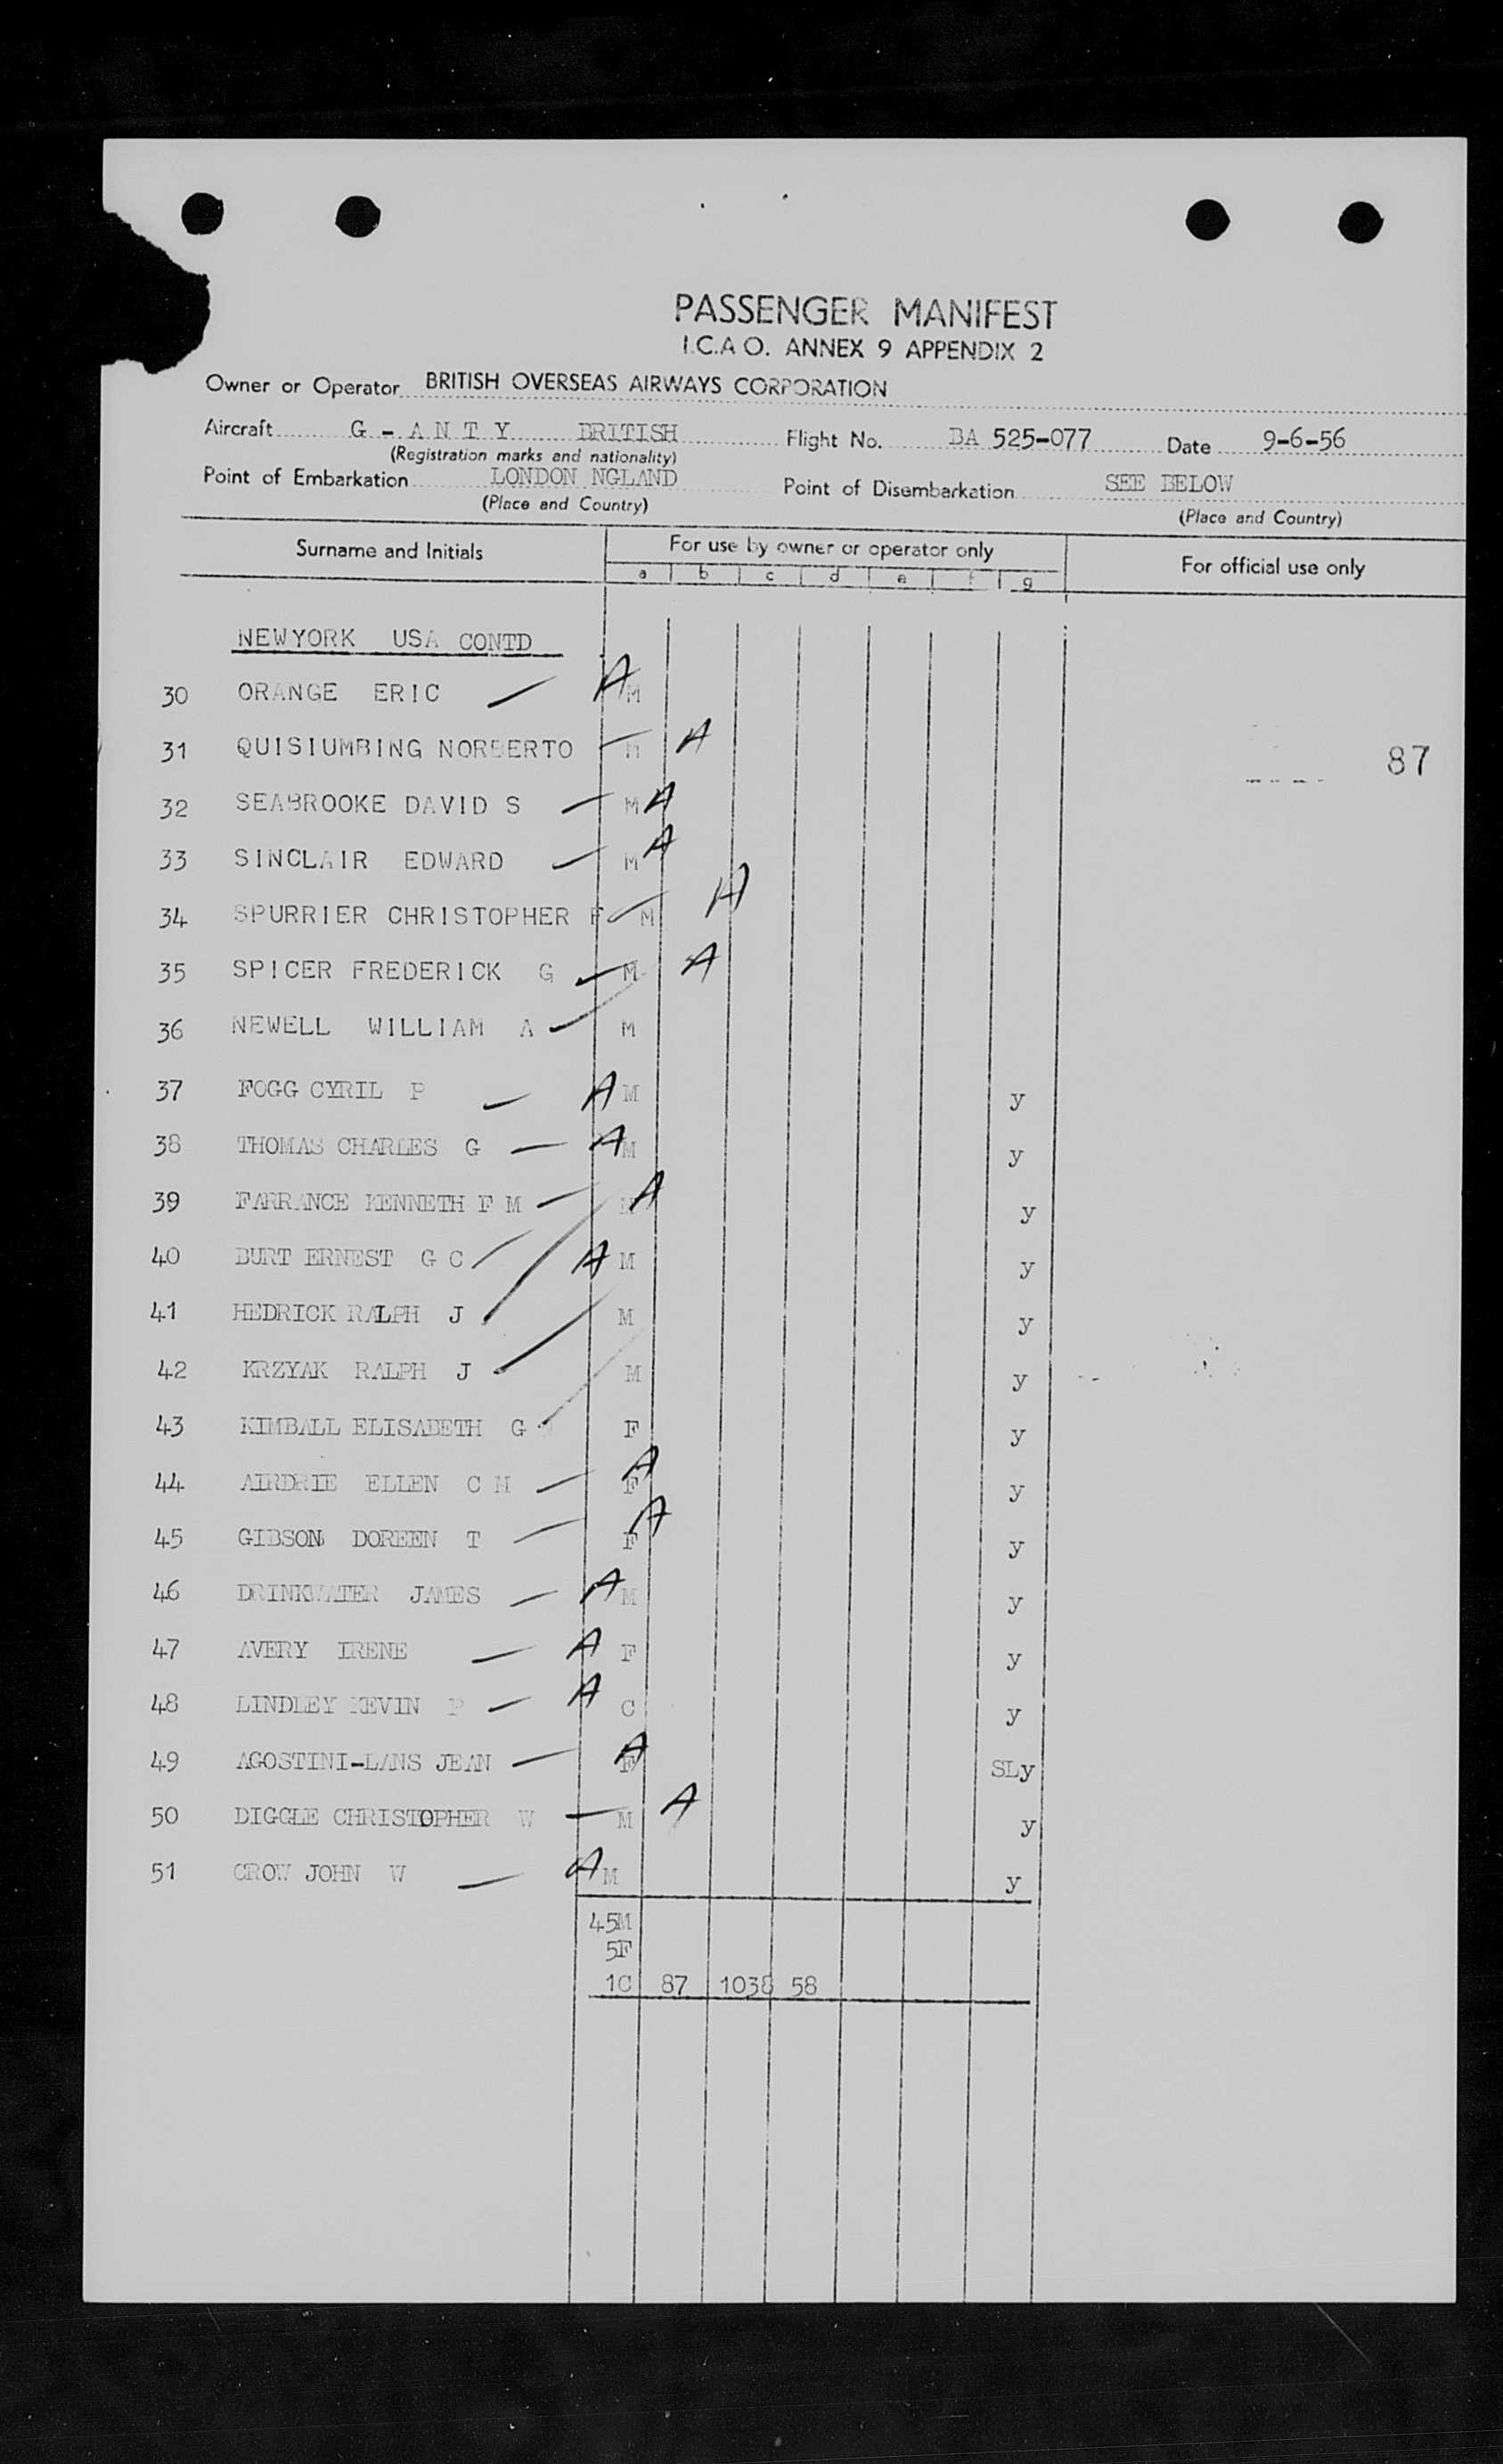 PASSENGER MANIFEST
I.C.A O. ANNEX 9 APPENDIX 2
Owner or Operator BRITISH OVERSEAS AIRWAYS CORPORATION
Aircraft G - A N T Y BRITISH Flight No. BA 525-077 Date 9-6-56
(Registration marks and nationality)
Point of Embarkation LONDON NGLAND Point of Disembarkation SEE BELOW
(Place and Country) (Place and Country)
Surname and Initials For use by owner or operator only For official use only
a b c d e f g
NEWYORK USA CONTD
30 ORANGE ERIC A M
31 QUISIUMBING NORBERTO M A
87
32 SEABROOKE DAVID S M A
33 SINCLAIR EDWARD M A
34 SPURRIER CHRISTOPHER F M A
35 SPICER FREDERICK G M A
36 NEWELL WILLIAM A M
37 FOGG CYRIL P A M y
38 THOMAS CHARLES G A M y
39 FARRANCE KENNETH F M M A y
40 BURT ERNEST G C A M y
41 HEDRICK RALPH J M y
42 KRZYAK RALPH J M y
43 KIMBALL ELISABETH G F y
44 AIRDRIE ELLEN C M F A y
45 GIBSON DOREEN T F A y
46 DRINKWATER JAMES A M y
47 AVERY IRENE A F y
48 LINDLEY KEVIN P A C y
49 AGOSTINI-LANS JEAN F A SLy
50 DIGGLE CHRISTOPHER W M A y
51 CROW JOHN W A M y
45M
5F
1C 87 1038 58